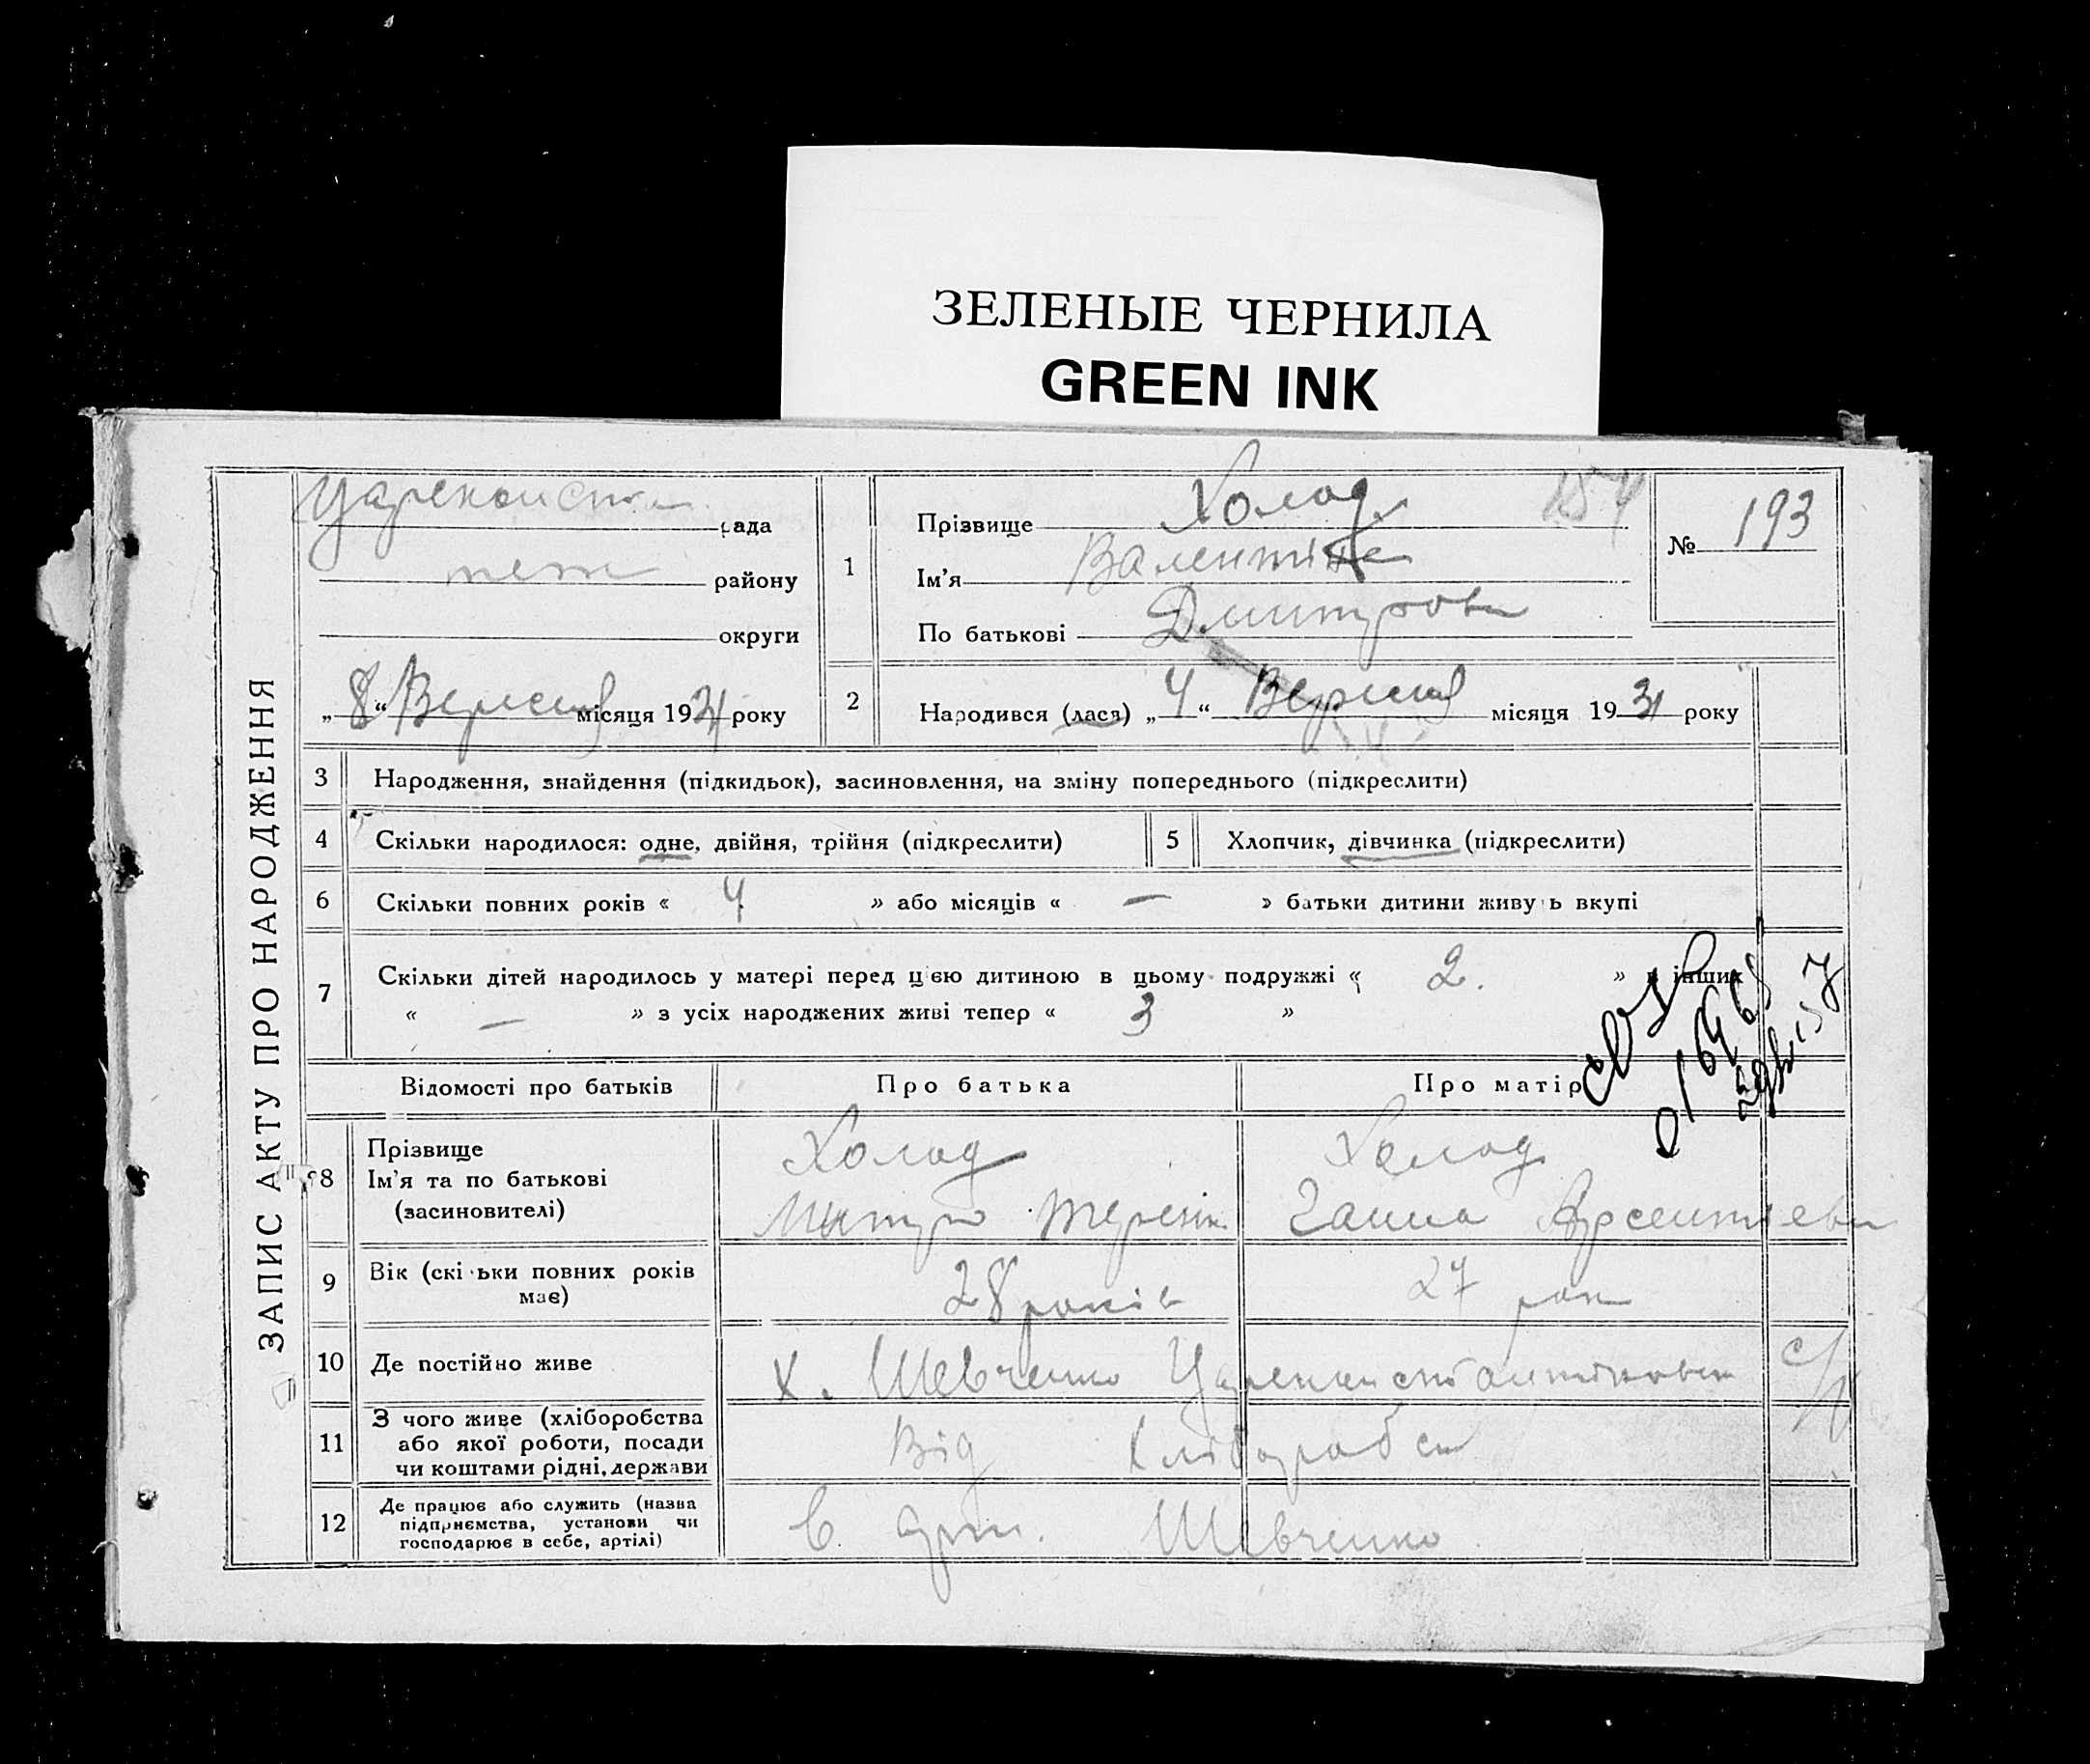 ЗЕЛЕНЫЕ ЧЕРНИЛА
GREEN INK
ЗАПИС АКТУ ПРО НАРОДЖЕННЯ
рада
району
округи
„8“ Вересня місяця 1931 року
1
Прізвище Холод 154
Ім'я Валентина
По батькові Дмитрова
№ 193
2 Народився (лася) „4“ Вересня місяця 1931 року
3 Народження, знайдення (підкидьок), засиновлення, на зміну попереднього (підкреслити)
4 Скільки народилося: одне, двійня, трійня (підкреслити)
5 Хлопчик, дівчинка (підкреслити)
6 Скільки повних років « 4 » або місяців « — » батьки дитини живуть вкупі
7 Скільки дітей народилось у матері перед цією дитиною в цьому подружжі « 2. » в інших
« — » з усіх народжених живі тепер « 3 »
Відомості про батьків Про батька Про матір
8 Прізвище Холод Холод
Ім'я та по батькові
(засиновителі) Митро Ганна Арсентієва
9 Вік (скільки повних років має) 28 років 27 рок
10 Де постійно живе х. Шевченко
11 З чого живе (хліборобства
або якої роботи, посади
чи коштами рідні, держави Від хліборобст
12 Де працює або служить (назва
підприємства, установи чи
господарює в себе, артілі) в арт. Шевченко